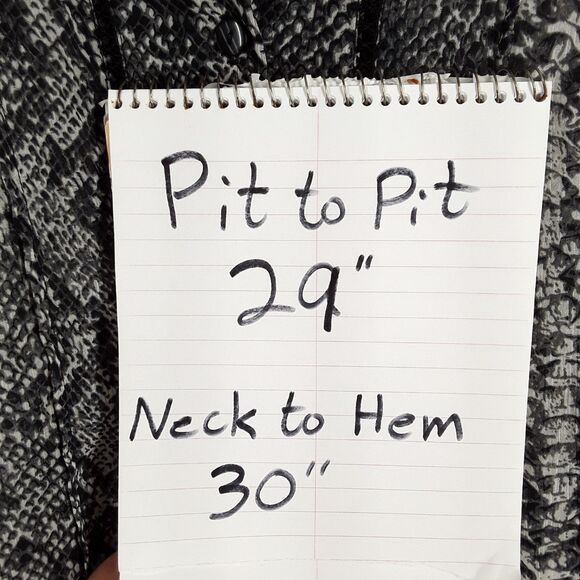 Pit to Pit
29"
Neck to Hem
30"